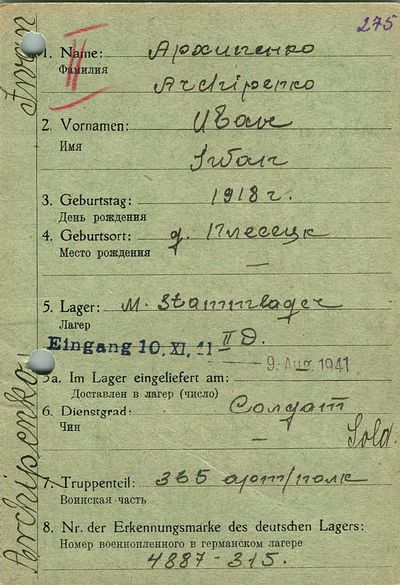 275
II
1. Name: Архипенко
Фамилия
Archipenko
2. Vornamen: Иван
Имя
Iwan
3. Geburtstag: 1918 г.
День рождения
4. Geburtsort: д. Плесецк
Место рождения
—
5. Lager: M. Stammlager
Лагер
II D.
Eingang 10. XI. 41
9. Aug. 1941
5a. Im Lager eingeliefert am:
Доставлен в лагер (число)
6. Dienstgrad: Солдат
Чин
— Sold.
7. Truppenteil: 365 арт/полк
Воинская часть
8. Nr. der Erkennungsmarke des deutschen Lagers:
Номер военнопленного в германском лагере
4887-315.
Archipenko Iwan